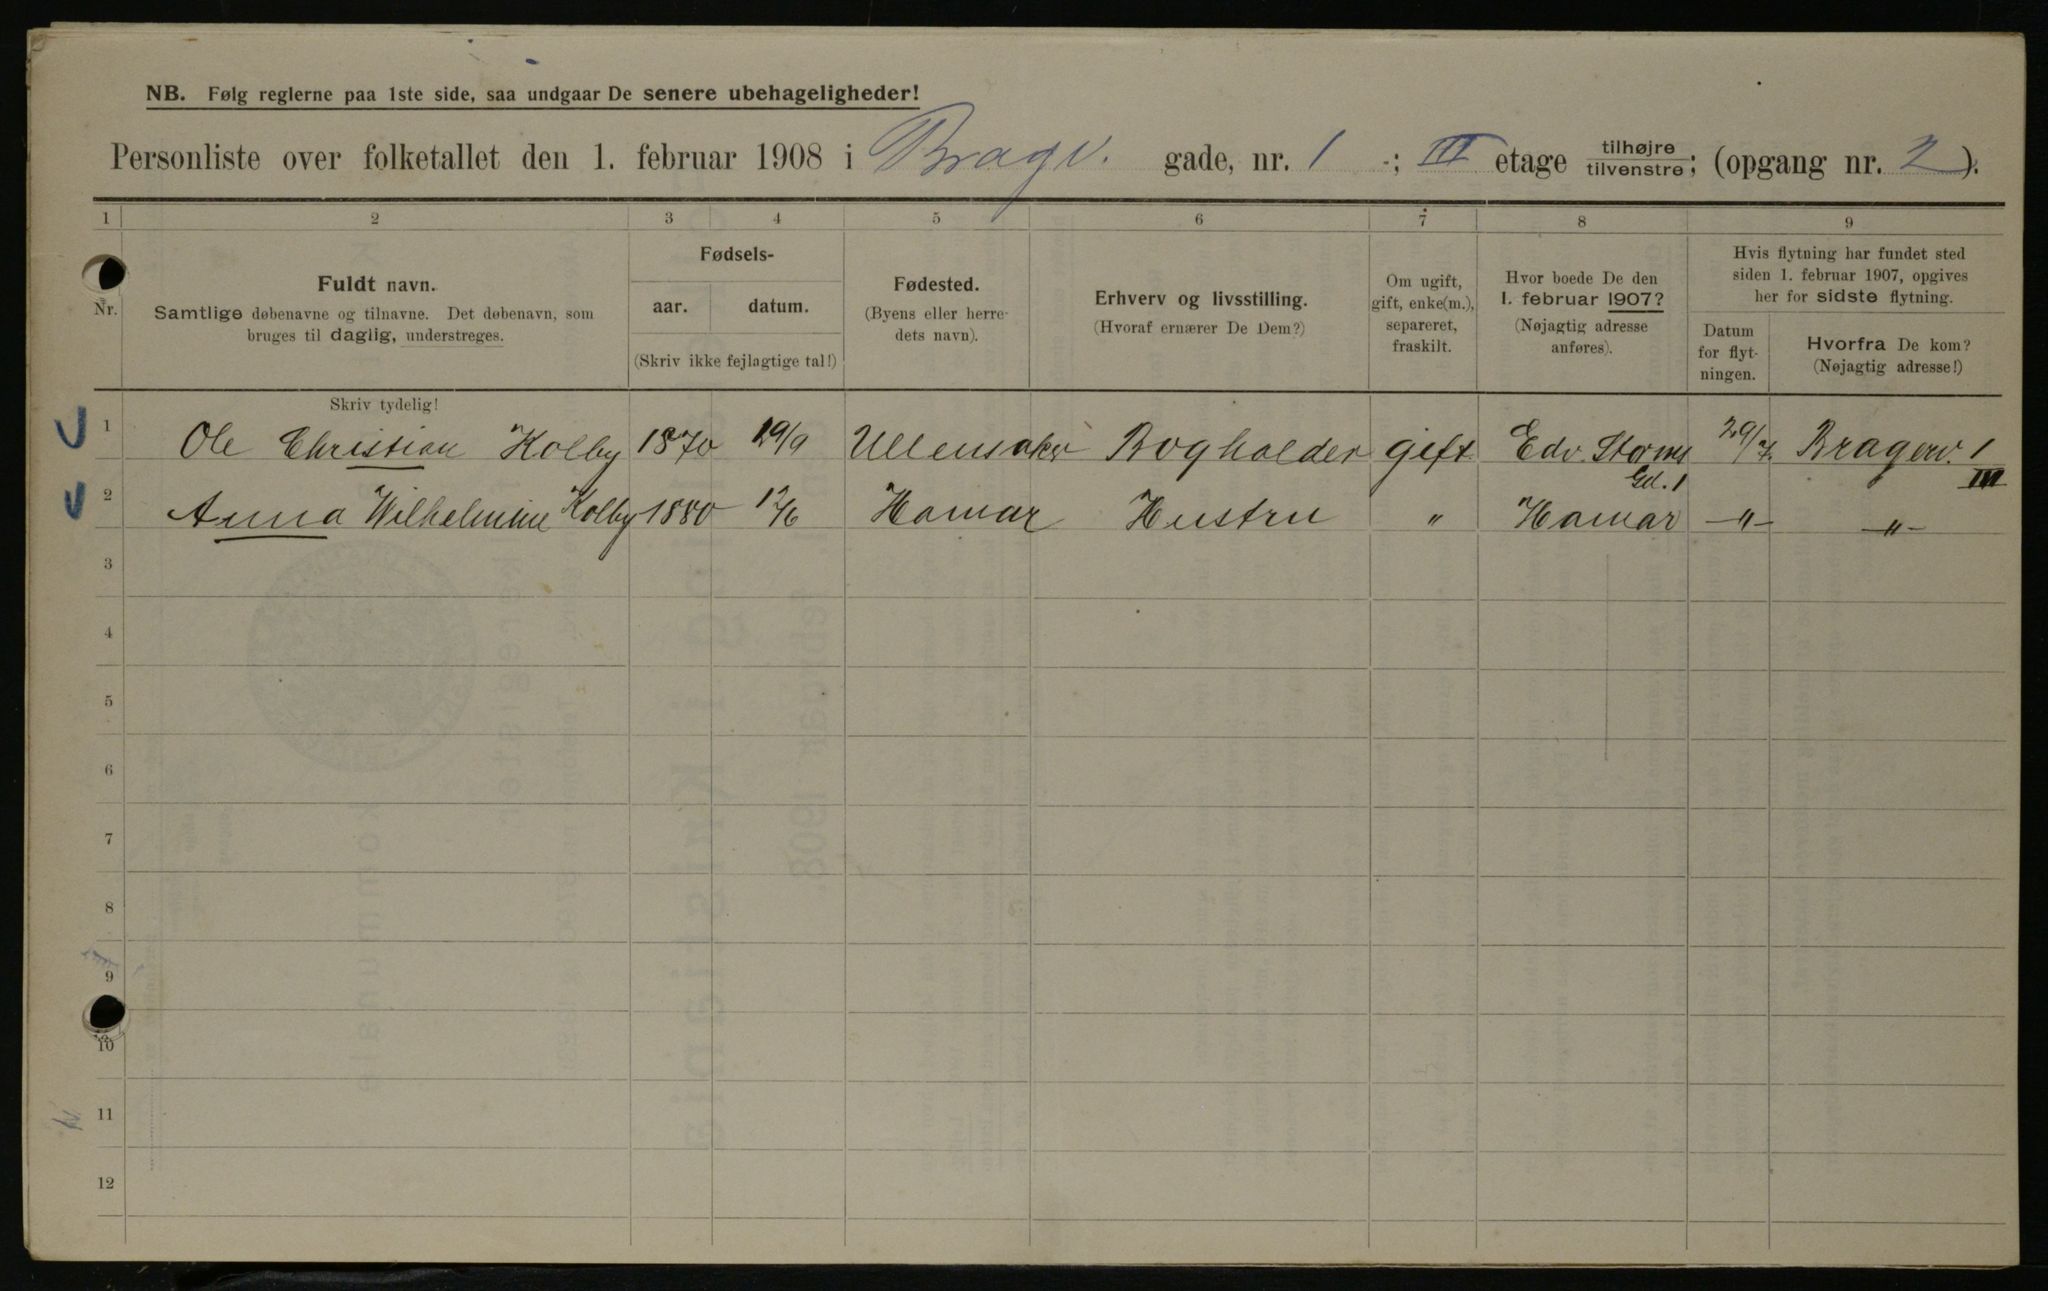 NB. Følg reglerne paa 1ste side, saa undgaar De senere ubehageligheder!
Personliste over folketallet den 1. februar 1908 i Bragv. gade, nr. 1 -; III etage tilhøjre tilvenstre; (opgang nr. 2).
1 2 3 4 5 6 7 8 9
Nr. Fuldt navn. Samtlige døbenavne og tilnavne. Det døbenavn, som bruges til daglig, understreges.
Fødsels- aar. datum. (Skriv ikke fejlagtige tal!)
Fødested. (Byens eller herredets navn).
Erhverv og livsstilling. (Hvoraf ernærer De Dem?)
Om ugift, gift, enke(m.), separeret, fraskilt.
Hvor boede De den 1. februar 1907? (Nøjagtig adresse anføres).
Hvis flytning har fundet sted siden 1. februar 1907, opgives her for sidste flytning.
Datum for flytningen. Hvorfra De kom? (Nøjagtig adresse!)
Skriv tydelig!
1 Ole Christian Kolby 1870 19/9 Ullensaker Bogholder gift Edv. Storms Gd. 1 29/7 Bragerv. 1 III
2 Anna Wilhelmine Kolby 1880 12/6 Hamar Hustru " Hamar -"- -"-
3
4
5
6
7
8
9
10
11
12